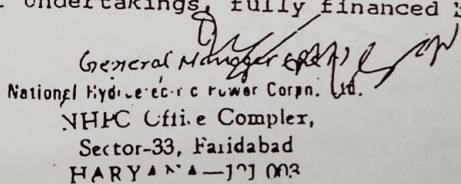 undertakings, fully financed
General Manager
National Hydroelectric Power Corpn. Ltd.
NHPC Office Complex,
Sector-33, Faridabad
HARYANA—121 003